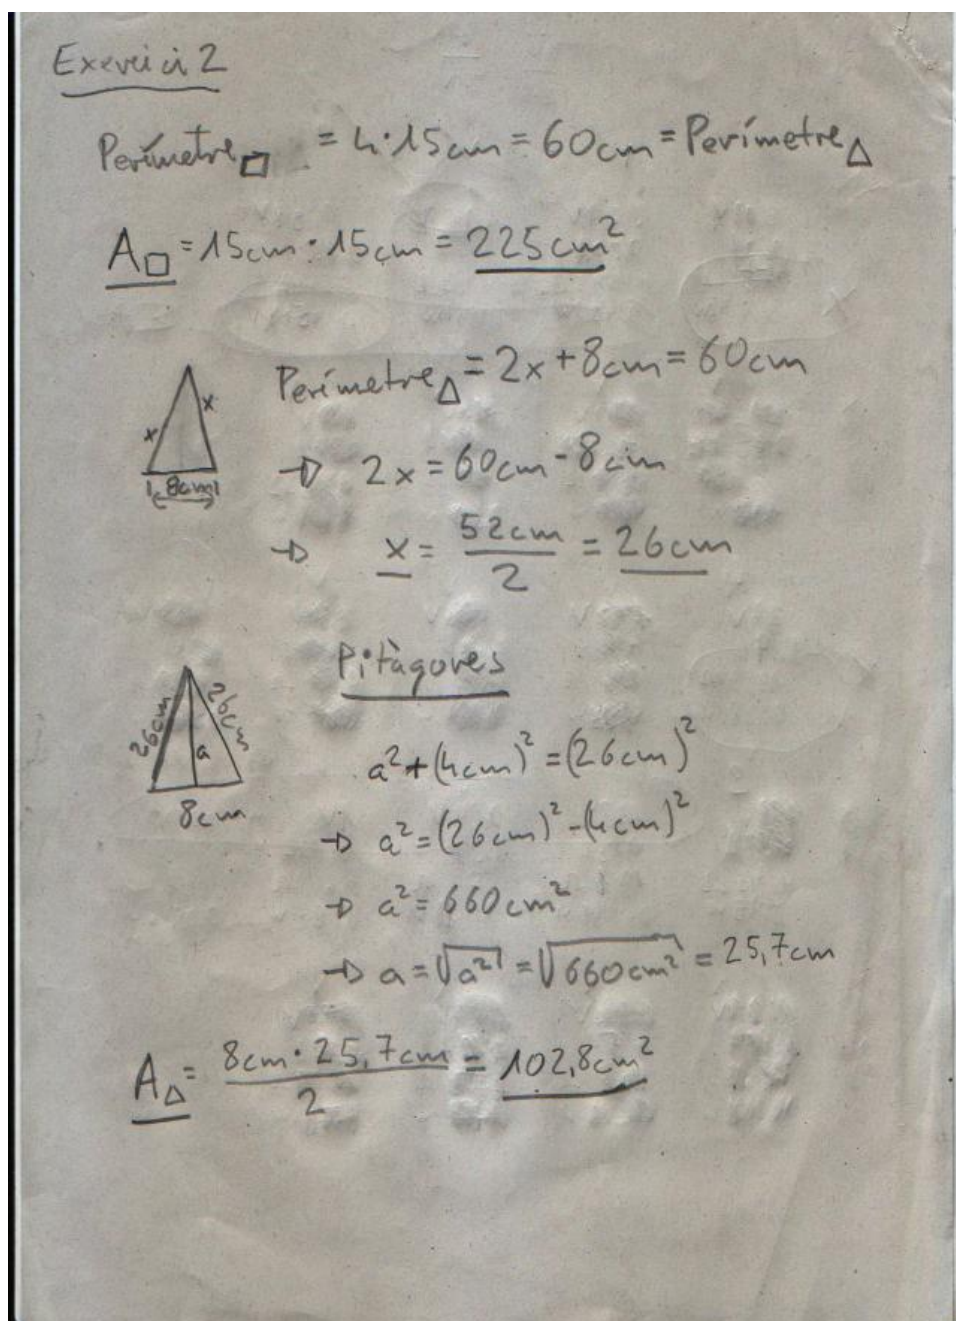 Exercici 2
Perímetre□ = 4·15cm = 60cm = Perímetre△
A□ = 15cm · 15cm = 225cm²
Perímetre△ = 2x + 8cm = 60cm
x
x
8cm
→ 2x = 60cm - 8cm
→ x = 52cm/2 = 26cm
Pitàgores
26cm
26cm
a
8cm
a² + (4cm)² = (26cm)²
→ a² = (26cm)² - (4cm)²
→ a² = 660cm²
→ a = √a² = √660cm² = 25,7cm
A△ = 8cm · 25,7cm/2 = 102,8cm²